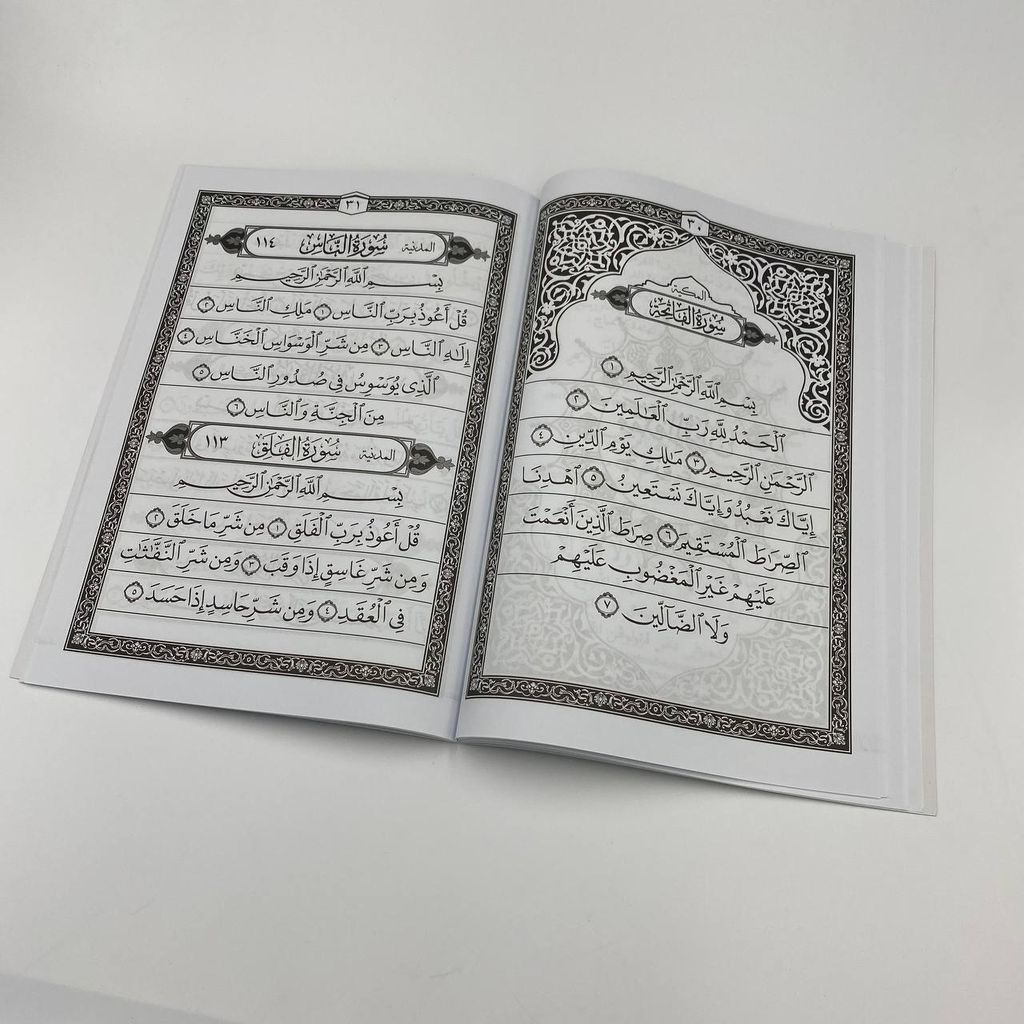 ٣٠
المكية
سُورَةُ الفَاتِحَةِ
بِسْمِ ٱللَّهِ ٱلرَّحْمَٰنِ ٱلرَّحِيمِ ١
ٱلْحَمْدُ لِلَّهِ رَبِّ ٱلْعَٰلَمِينَ ٢
ٱلرَّحْمَٰنِ ٱلرَّحِيمِ ٣ مَٰلِكِ يَوْمِ ٱلدِّينِ ٤
إِيَّاكَ نَعْبُدُ وَإِيَّاكَ نَسْتَعِينُ ٥ ٱهْدِنَا
ٱلصِّرَٰطَ ٱلْمُسْتَقِيمَ ٦ صِرَٰطَ ٱلَّذِينَ أَنْعَمْتَ
عَلَيْهِمْ غَيْرِ ٱلْمَغْضُوبِ عَلَيْهِمْ
وَلَا ٱلضَّآلِّينَ ٧
٣١
المدنية سُورَةُ النَّاسِ ١١٤
بِسْمِ ٱللَّهِ ٱلرَّحْمَٰنِ ٱلرَّحِيمِ
قُلْ أَعُوذُ بِرَبِّ ٱلنَّاسِ ١ مَلِكِ ٱلنَّاسِ ٢
إِلَٰهِ ٱلنَّاسِ ٣ مِن شَرِّ ٱلْوَسْوَاسِ ٱلْخَنَّاسِ ٤
ٱلَّذِى يُوَسْوِسُ فِى صُدُورِ ٱلنَّاسِ ٥
مِنَ ٱلْجِنَّةِ وَٱلنَّاسِ ٦
المدنية سُورَةُ الفَلَقِ ١١٣
بِسْمِ ٱللَّهِ ٱلرَّحْمَٰنِ ٱلرَّحِيمِ
قُلْ أَعُوذُ بِرَبِّ ٱلْفَلَقِ ١ مِن شَرِّ مَا خَلَقَ ٢
وَمِن شَرِّ غَاسِقٍ إِذَا وَقَبَ ٣ وَمِن شَرِّ ٱلنَّفَّٰثَٰتِ
فِى ٱلْعُقَدِ ٤ وَمِن شَرِّ حَاسِدٍ إِذَا حَسَدَ ٥